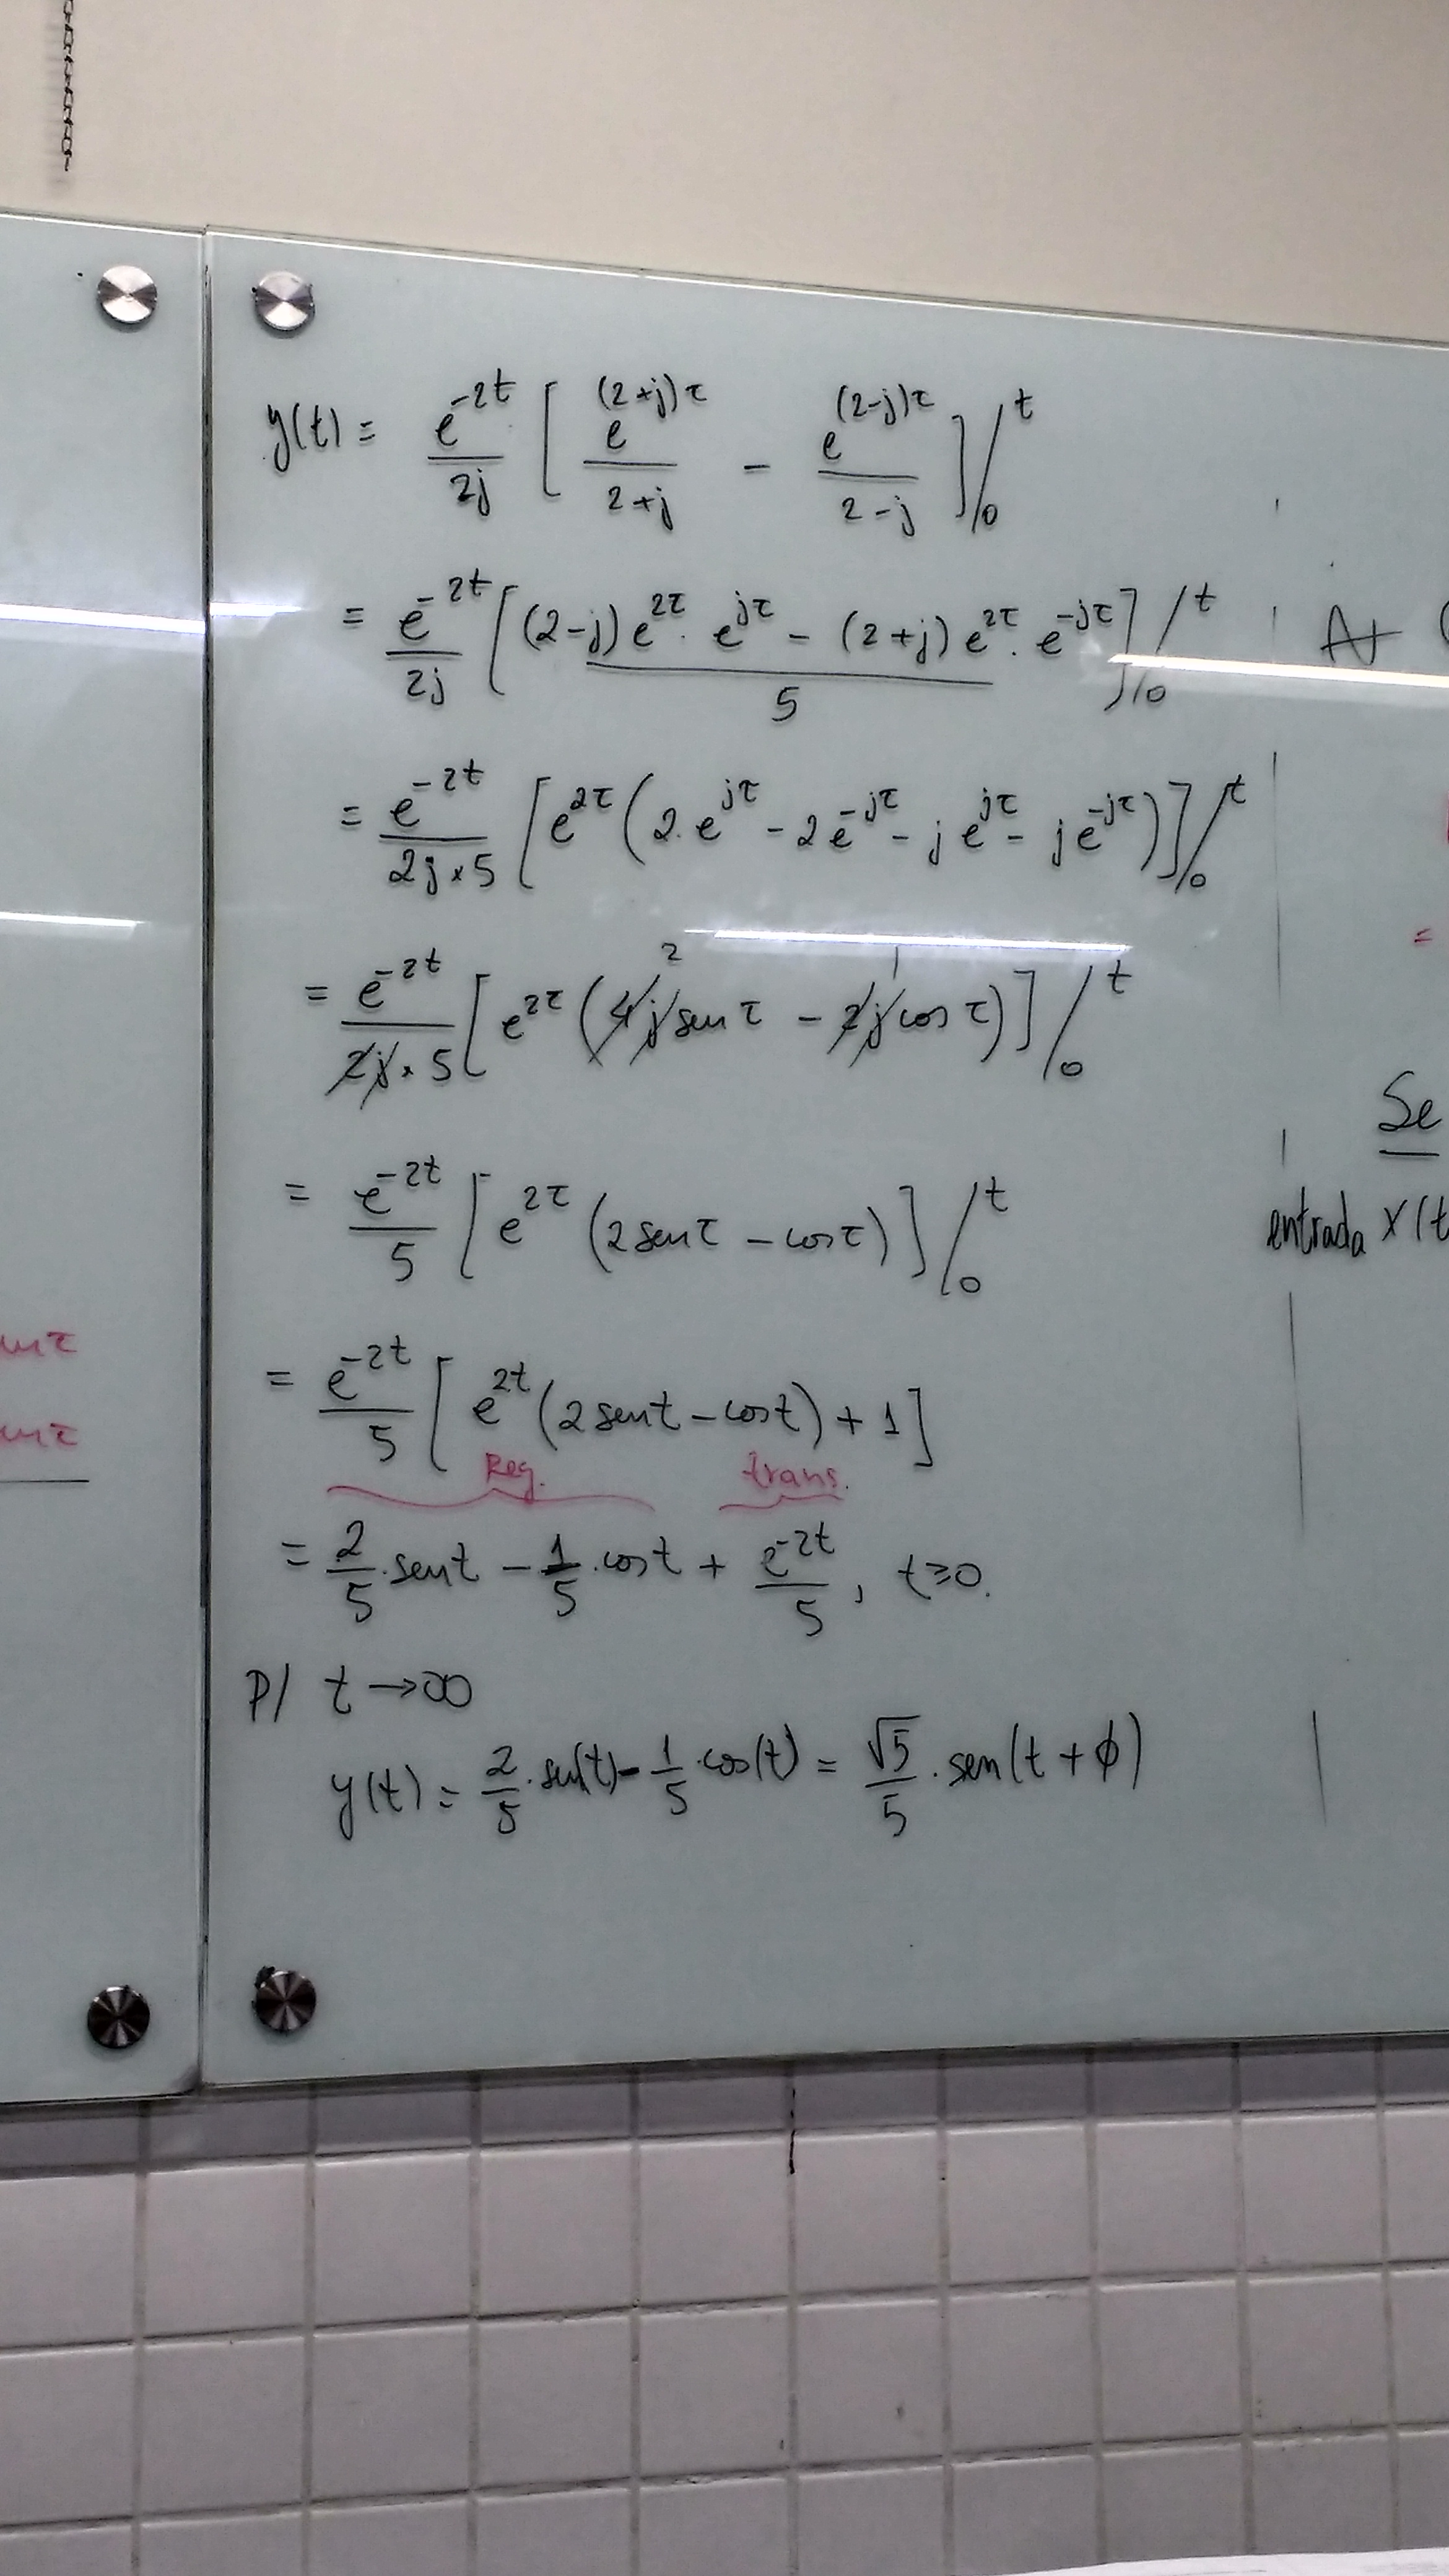 y(t) = e^{-2t}/2j [ e^{(2+j)τ}/(2+j) - e^{(2-j)τ}/(2-j) ] /_0^t
= e^{-2t}/2j [ ((2-j) e^{2τ} · e^{jτ} - (2+j) e^{2τ} · e^{-jτ})/5 ] /_0^t
= e^{-2t}/(2j×5) [ e^{2τ} (2·e^{jτ} - 2e^{-jτ} - j e^{jτ} - j e^{-jτ}) ] /_0^t
2 1
= e^{-2t}/(2j×5) [ e^{2τ} (4j sen τ - 2j cos τ) ] /_0^t
= e^{-2t}/5 [ e^{2τ} (2 sen τ - cos τ) ] /_0^t
= e^{-2t}/5 [ e^{2t} (2 sen t - cos t) + 1 ]
Reg. trans.
= 2/5 · sen t - 1/5 · cos t + e^{-2t}/5 , t ≥ 0.
P/ t → ∞
y(t) = 2/5 · sen(t) - 1/5 · cos(t) = √5/5 · sen(t + ϕ)
=
Se
entrada x(t